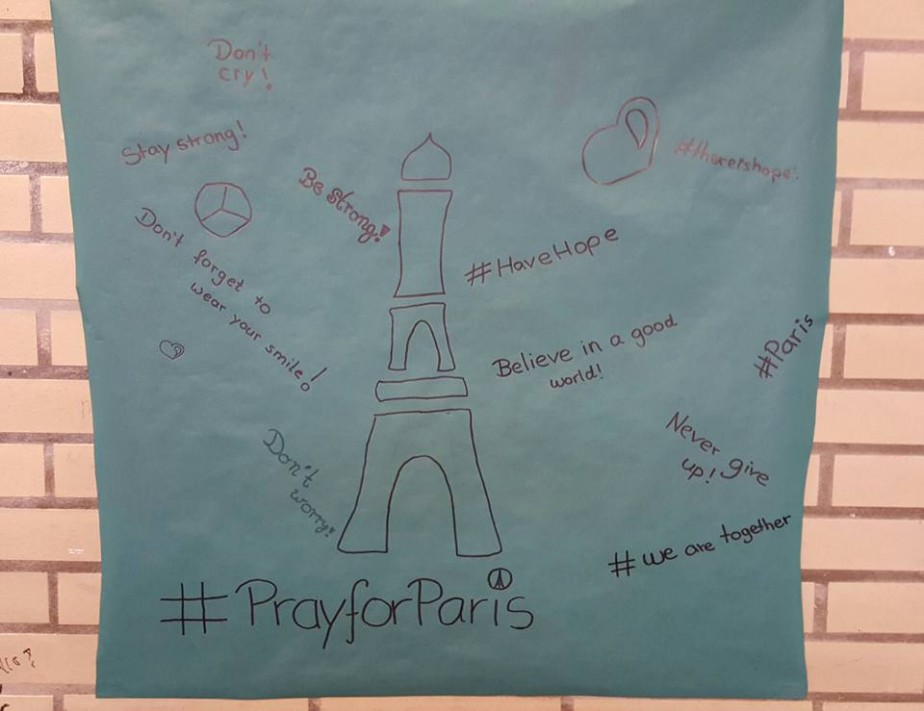 Don't
cry!
Stay strong!
#therershope!
Be strong!
Don't forget to
wear your smile!
#HaveHope
Believe in a good
world!
#Paris
Never give
up!
Don't
worry!
# we are together
#PrayforParis